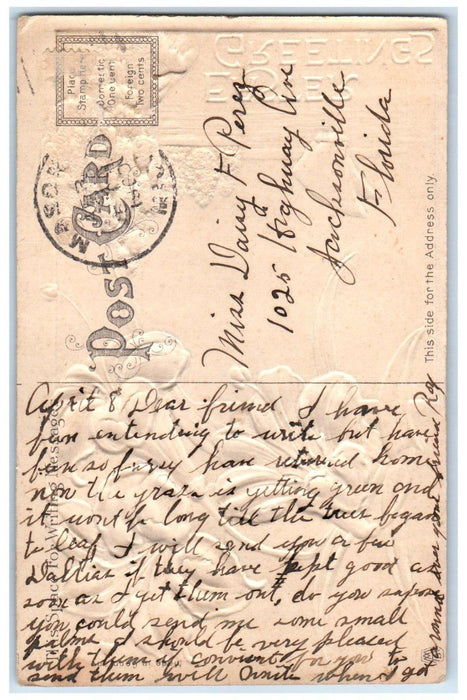 GREETINGS
Place
Stamp Here
Domestic
One Cent
Foreign
Two cents
POST CARD
Miss Daisy F Perez
1025 Highway Ave
Jacksonville
Florida
This side for the Address only.
This Space for Writing Messages
April 8 Dear friend I have
ben entending to write but have
ben so busy have returned home
now the grass is getting green and
it wont be long till the trees began
to leaf I will send you a few
Dallias if they have kept good as
soon as I get them out, do you supose
you could send me some small
palms I should be very pleased
with them convient for you to
send them will write when I get
around your friend Ray